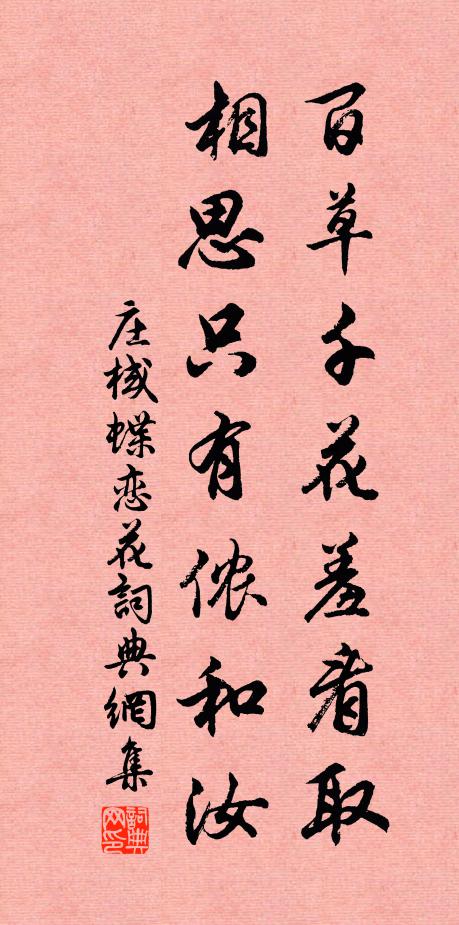 百草千花羞看取
相思只有侬和汝
庄棫蝶恋花詞典網集
詞典网印